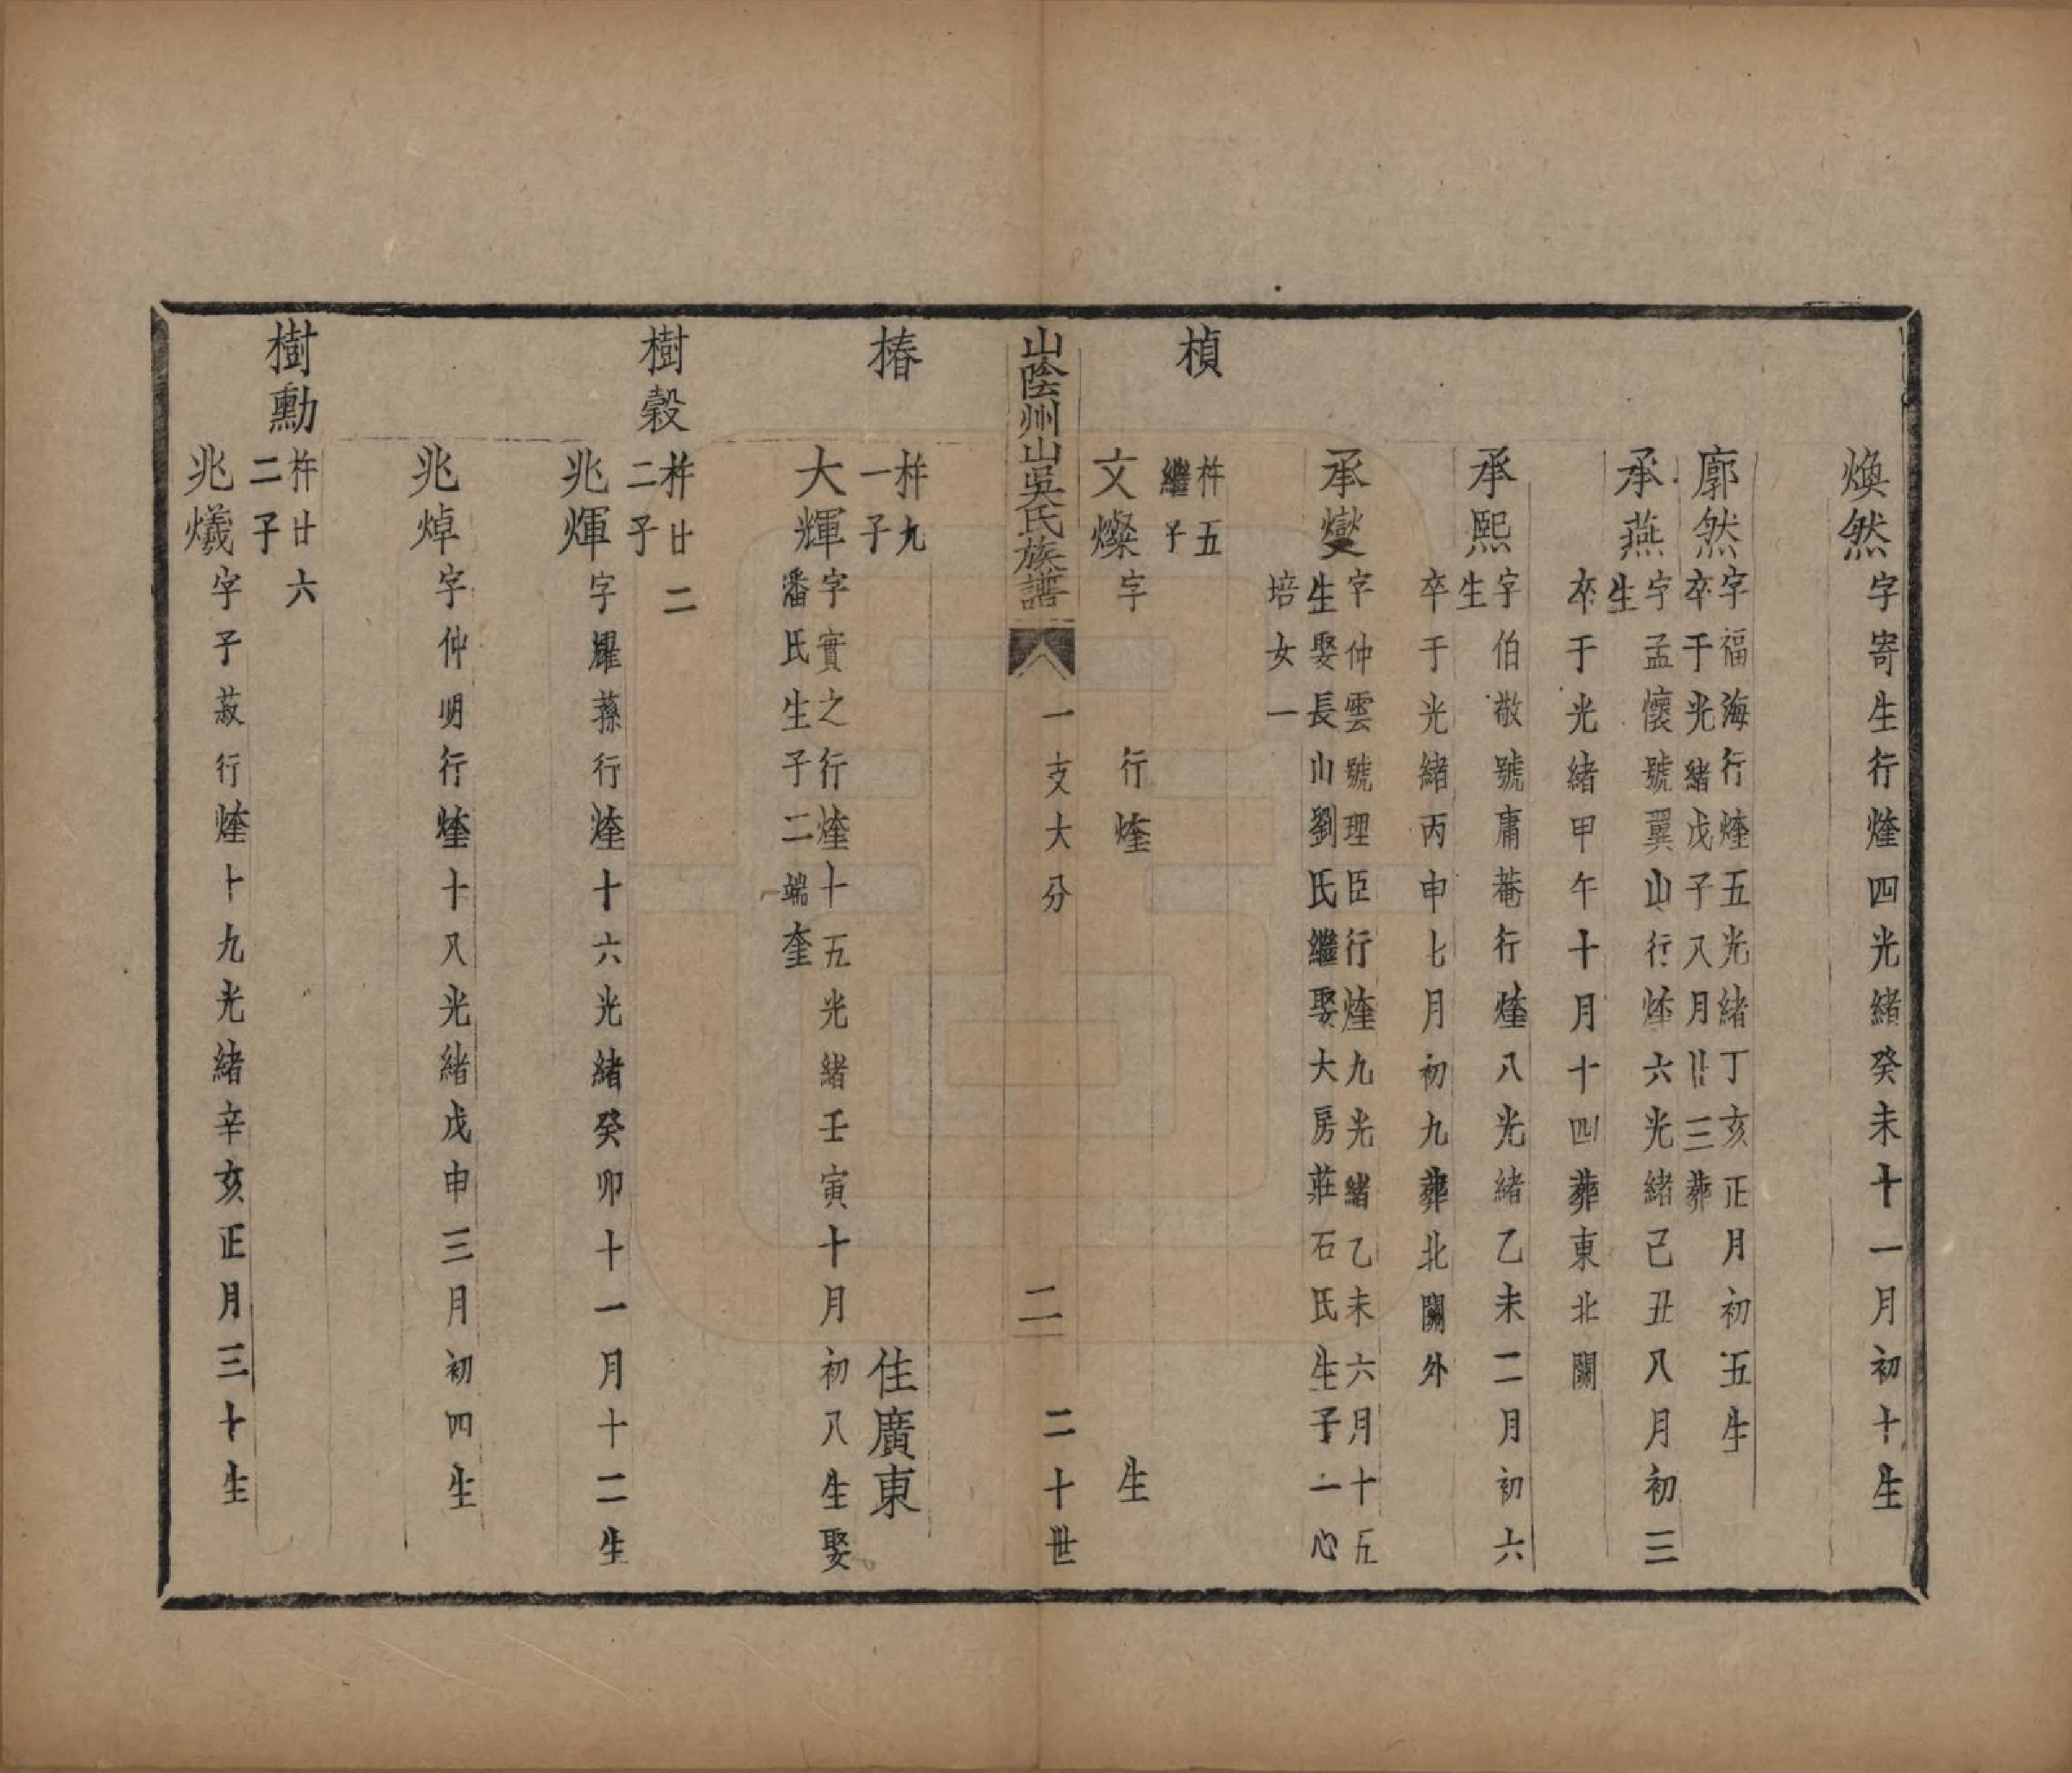 煥然 字寄生行烽四光緒癸未十一月初十生
廓然 字福海行烽五光緒丁亥正月初五生
卒于光緒戊子八月廿三葬
承燕 字孟懷號翼山行烽六光緒己丑八月初三
生
卒于光緒甲午十月十四葬東北關
承熙 字伯敬號庸菴行烽八光緒乙未二月初六
生
卒于光緒丙申七月初九葬北關外
承燮 字仲雲號理臣行烽九光緒乙未六月十五
生娶長山劉氏繼娶大房莊石氏生子一心
培女一
楨 杵五
繼子
文燦 字 行烽 生
山陰州山吳氏族譜 一支大分 二 二十世
椿 杵九 住廣東
一子
大輝 字實之行烽十五光緒壬寅十月初八生娶
潘氏生子二端奎
樹穀 杵廿二
二子
兆煇 字耀蓀行烽十六光緒癸卯十一月十二生
兆焯 字仲明行烽十八光緒戊申三月初四生
樹勳 杵廿六
二子
兆爔 字子菽行烽十九光緒辛亥正月三十生